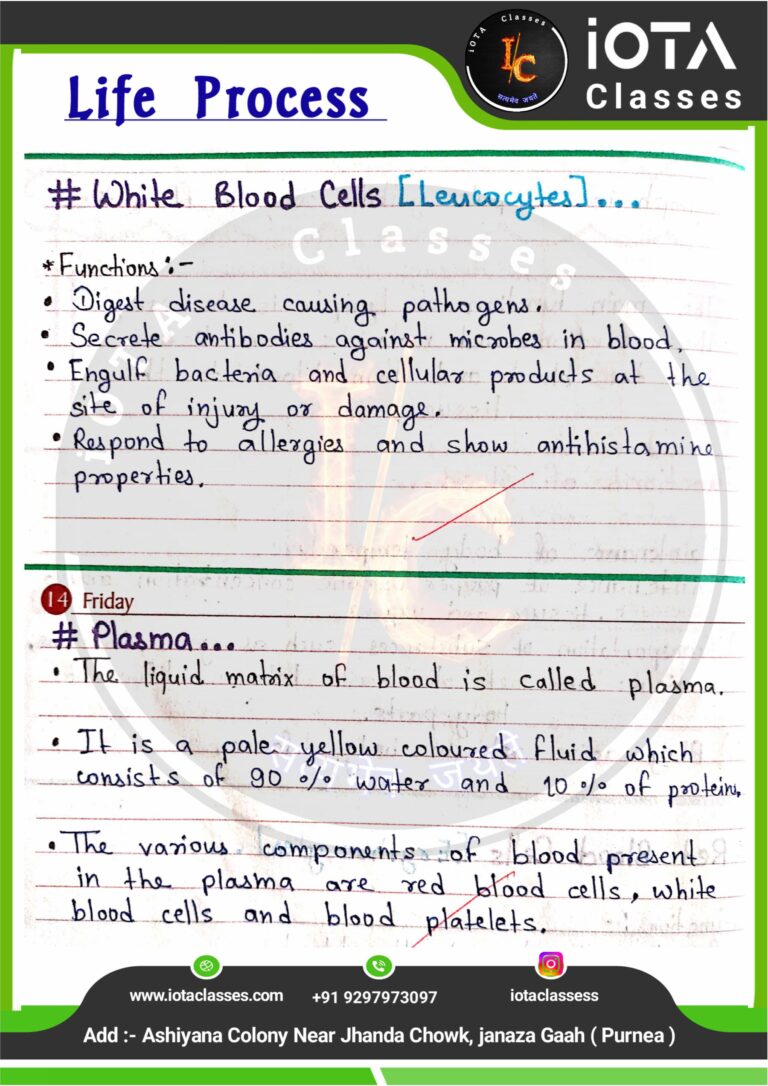 iOTA Classes
I/C
सत्यमेव जयते
iOTA
Classes
Life Process
# White Blood Cells [Leucocytes]...
* Functions :-
• Digest disease causing pathogens.
• Secrete antibodies against microbes in blood.
• Engulf bacteria and cellular products at the
site of injury or damage.
• Respond to allergies and show antihistamine
properties.
14 Friday
# Plasma...
• The liquid matrix of blood is called plasma.
• It is a pale yellow coloured fluid which
consists of 90 % water and 10 % of proteins,
• The various components of blood present
in the plasma are red blood cells, white
blood cells and blood platelets.
www.iotaclasses.com
+91 9297973097
iotaclassess
Add :- Ashiyana Colony Near Jhanda Chowk, janaza Gaah ( Purnea )